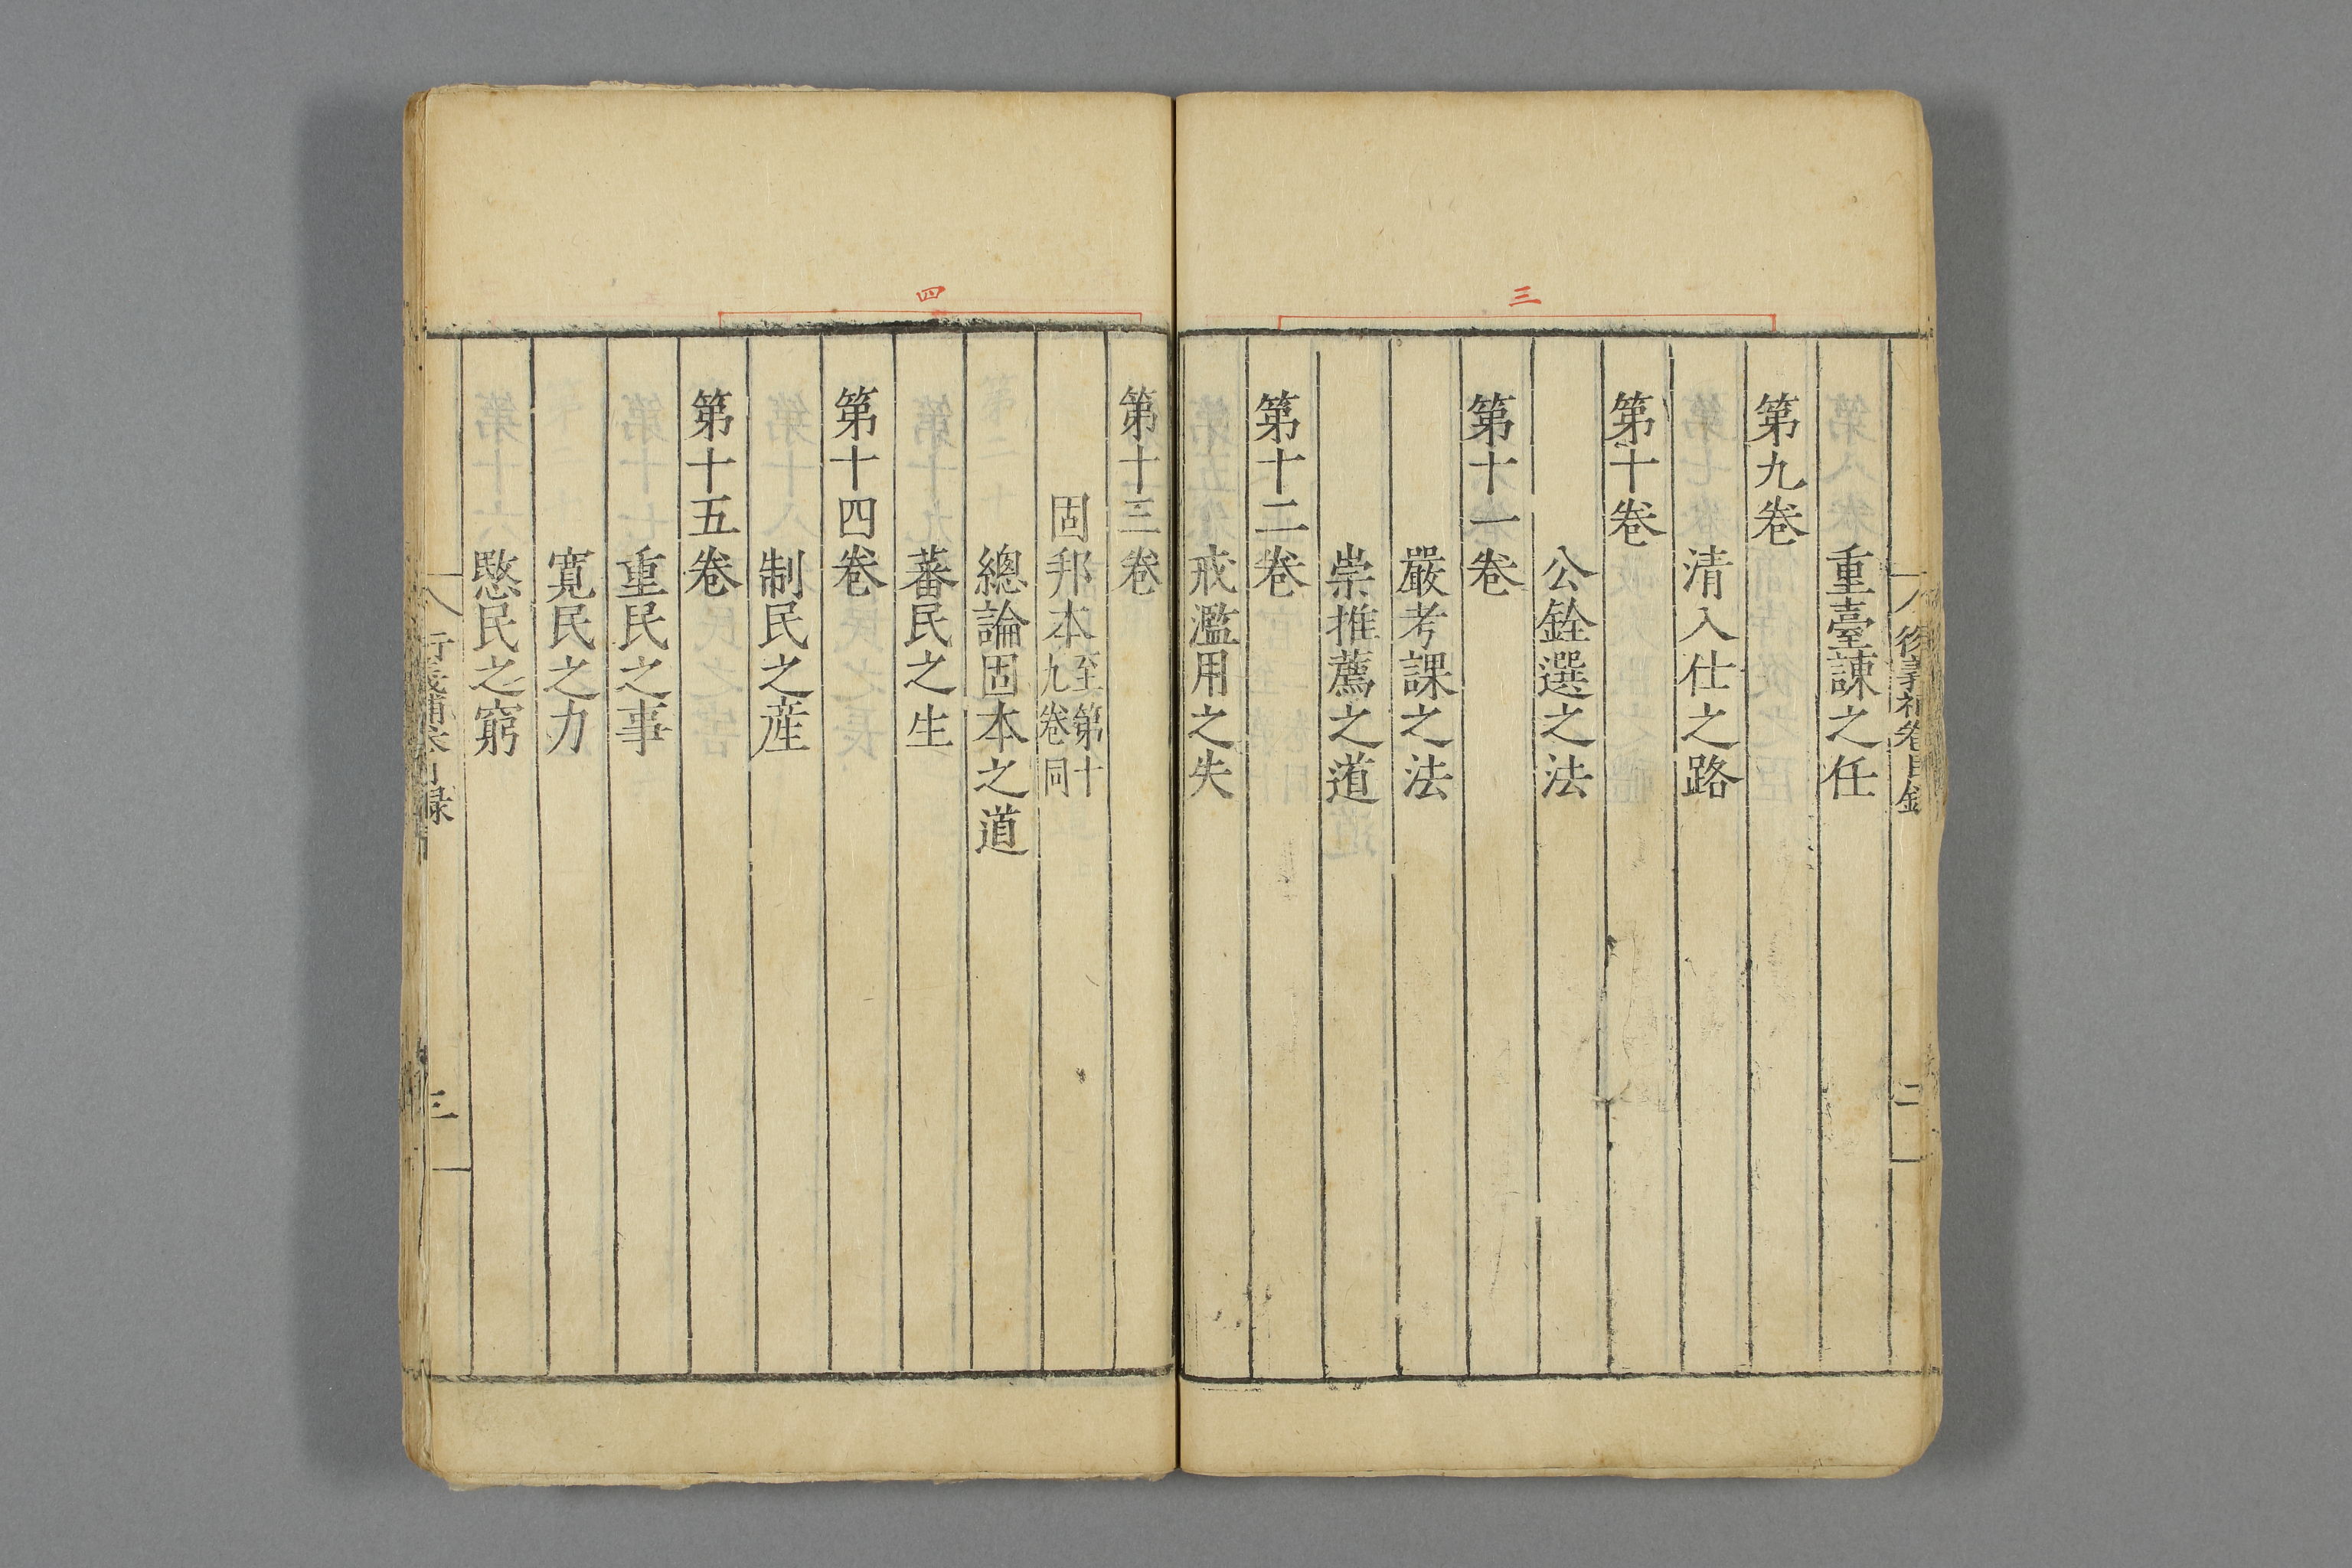 三
重臺諫之任
第九卷
清入仕之路
第十卷
公銓選之法
第十一卷
嚴考課之法
崇推薦之道
第十二卷
戒濫用之失
四
第十三卷
固邦本至第十九卷同
總論固本之道
蕃民之生
第十四卷
制民之産
第十五卷
重民之事
寬民之力
愍民之窮
三